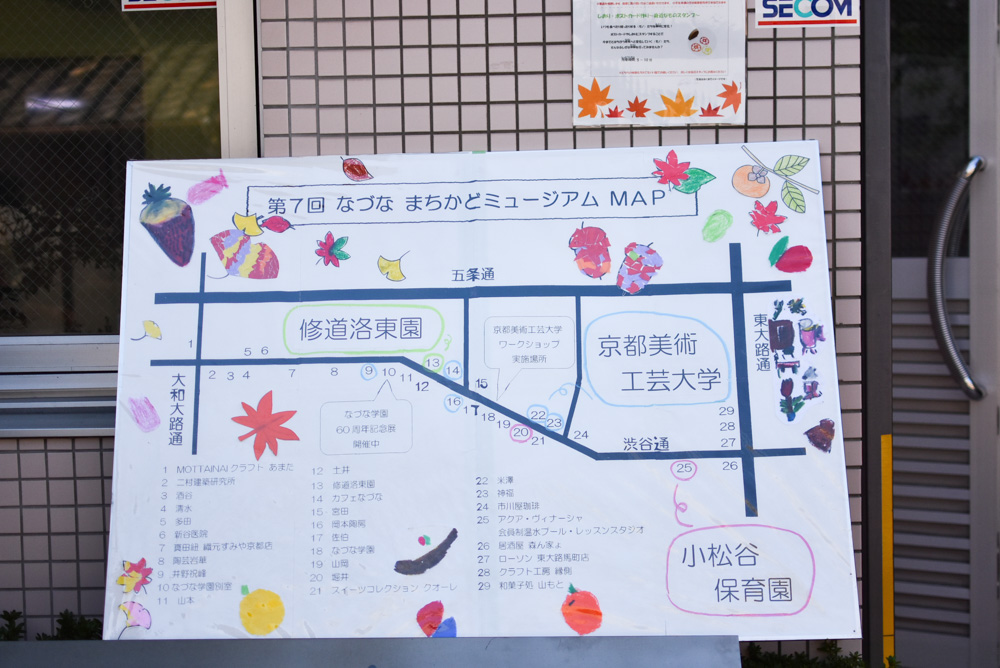 SECOM
SECOM
第7回 なづな まちかどミュージアム MAP
五条通
修道洛東園
京都美術工芸大学
ワークショップ
実施場所
京都美術
工芸大学
東大路通
大和大路通
渋谷通
なづな学園
60周年記念展
開催中
小松谷
保育園
1
2
3
4
5
6
7
8
9
10
11
12
13
14
15
16
17
18
19
20
21
22
23
24
25
26
27
28
29
1 MOTTAINAIクラフト あまた
2 二村建築研究所
3 酒谷
4 清水
5 多田
6 新谷医院
7 眞田紐 織元すみや京都店
8 陶芸岩華
9 井野祝峰
10 なづな学園別室
11 山本
12 土井
13 修道洛東園
14 カフェなづな
15 宮田
16 岡本陶房
17 佐伯
18 なづな学園
19 山岡
20 堀井
21 スイーツコレクション クオーレ
22 米澤
23 神堀
24 市川屋珈琲
25 アクア・ヴィナーシャ
会員制温水プール・レッスンスタジオ
26 居酒屋 森ん家ょ
27 ローソン 東大路馬町店
28 クラフト工房 縁側
29 和菓子処 山もと